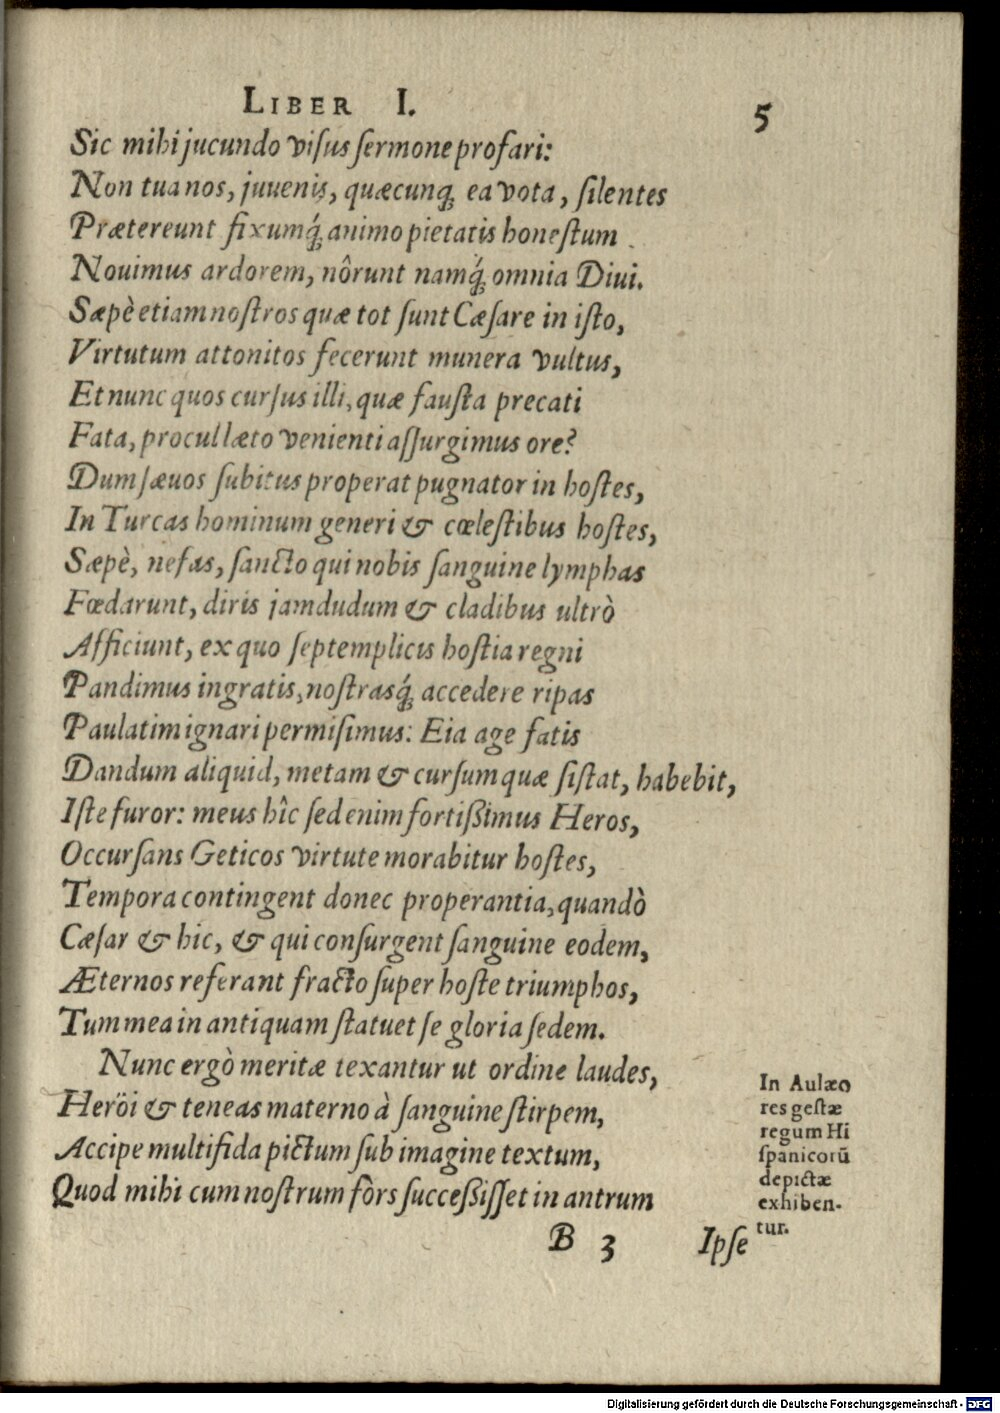 LIBER I. 5
Sic mihi jucundo viſus ſermone profari:
Non tua nos, juvenis, quæcunq; ea vota, ſilentes
Prætereunt fixumq́; animo pietatis honeſtum
Nouimus ardorem, nôrunt namq́; omnia Diui.
Sæpè etiam noſtros quæ tot ſunt Cæſare in iſto,
Virtutum attonitos fecerunt munera vultus,
Et nunc quos curſus illi, quæ fauſta precati
Fata, procul læto venienti aſſurgimus ore?
Dum ſæuos ſubitus properat pugnator in hoſtes,
In Turcas hominum generi & cœleſtibus hoſtes,
Sæpè, nefas, ſancto qui nobis ſanguine lymphas
Fœdarunt, diris jamdudum & cladibus ultrò
Afficiunt, ex quo ſeptemplicis hoſtia regni
Pandimus ingratis, noſtrasq́; accedere ripas
Paulatim ignari permiſimus: Eia age fatis
Dandum aliquid, metam & curſum quæ ſiſtat, habebit,
Iſte furor: meus hîc ſed enim fortißimus Heros,
Occurſans Geticos virtute morabitur hoſtes,
Tempora contingent donec properantia, quandò
Cæſar & hic, & qui conſurgent ſanguine eodem,
Æternos referant fracto ſuper hoſte triumphos,
Tum mea in antiquam ſtatuet ſe gloria ſedem.
Nunc ergò meritæ texantur ut ordine laudes,
Heröi & teneas materno à ſanguine ſtirpem,
Accipe multifida pictum ſub imagine textum,
Quod mihi cum noſtrum fòrs ſucceßiſſet in antrum
In Aulæo
res geſtæ
regum Hi
ſpanicorū
depictæ
exhiben-
tur.
B 3 Ipſe
Digitalisierung gefördert durch die Deutsche Forschungsgemeinschaft - DFG